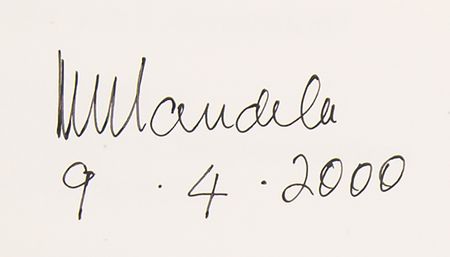 NMandela
9.4.2000